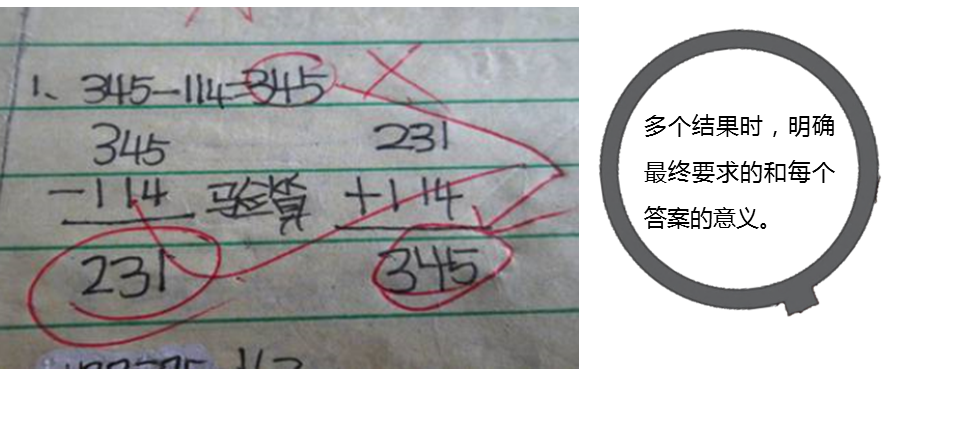 1、345-114=345
345
231
-114 验答 +114
231
345
多个结果时，明确
最终要求的和每个
答案的意义。